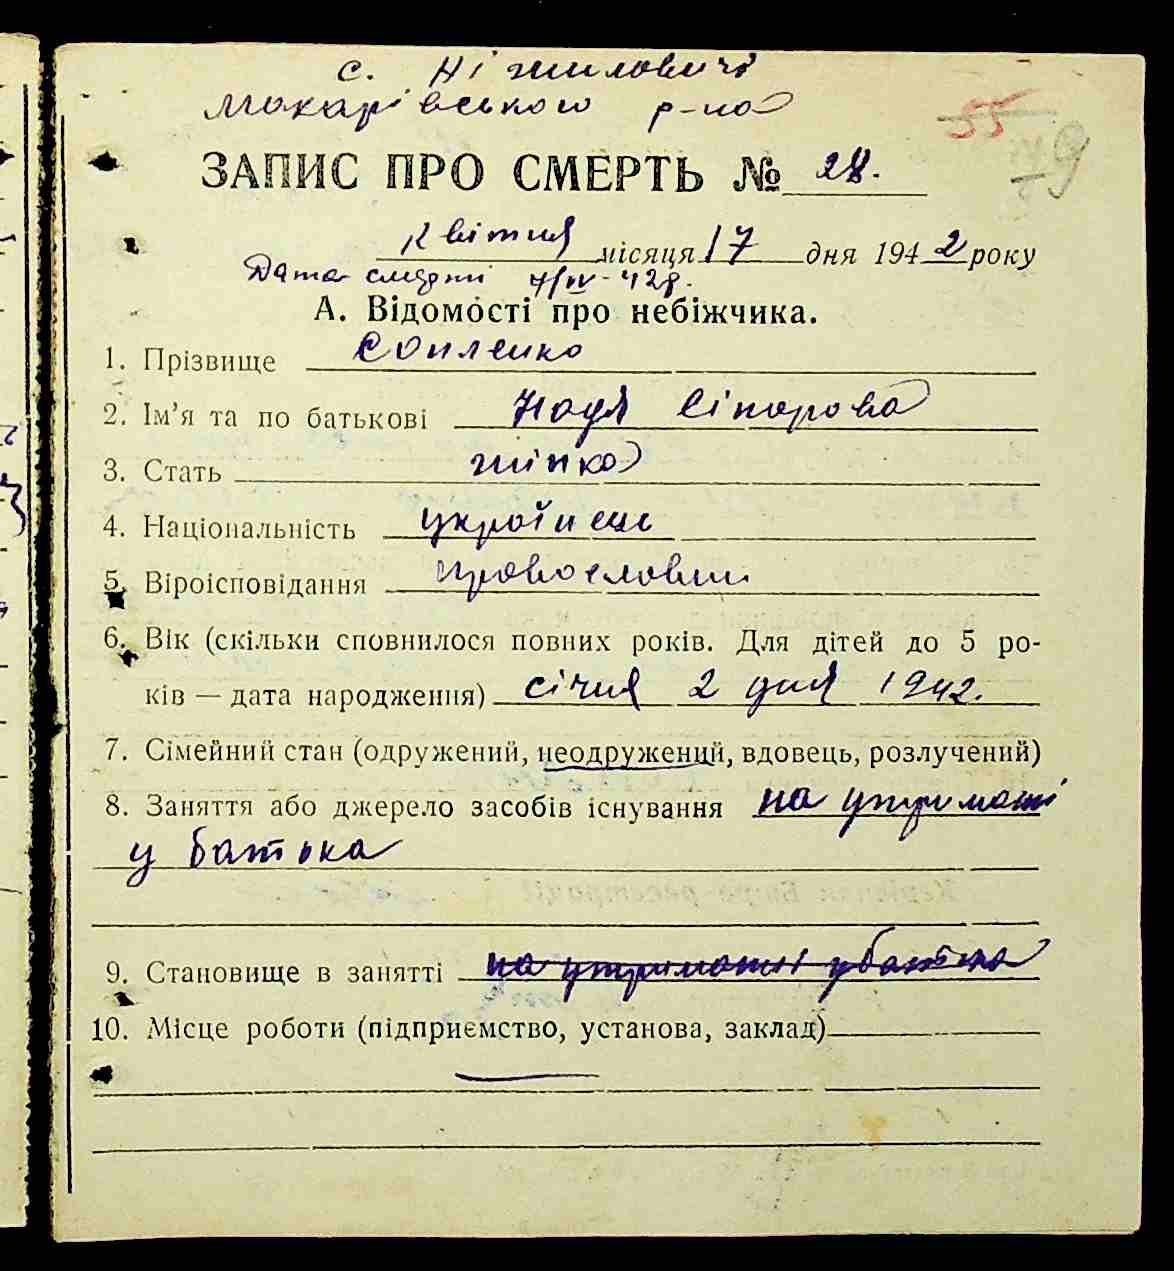 с. Ніжиловичі
Макарівського р-на
55
79
ЗАПИС ПРО СМЕРТЬ № 28.
Квітня місяця 17 дня 1942 року
Дата смерті 7/IV-42р.
А. Відомості про небіжчика.
1. Прізвище Сопленко
2. Ім’я та по батькові Надя
3. Стать жінка
4. Національність українець
5. Віроісповідання православни
6. Вік (скільки сповнилося повних років. Для дітей до 5 ро-
ків — дата народження) січня 2 дня 1942.
7. Сімейний стан (одружений, неодружений, вдовець, розлучений)
8. Заняття або джерело засобів існування на утриманні
у батька
9. Становище в занятті на утриманні у батька
10. Місце роботи (підприємство, установа, заклад)